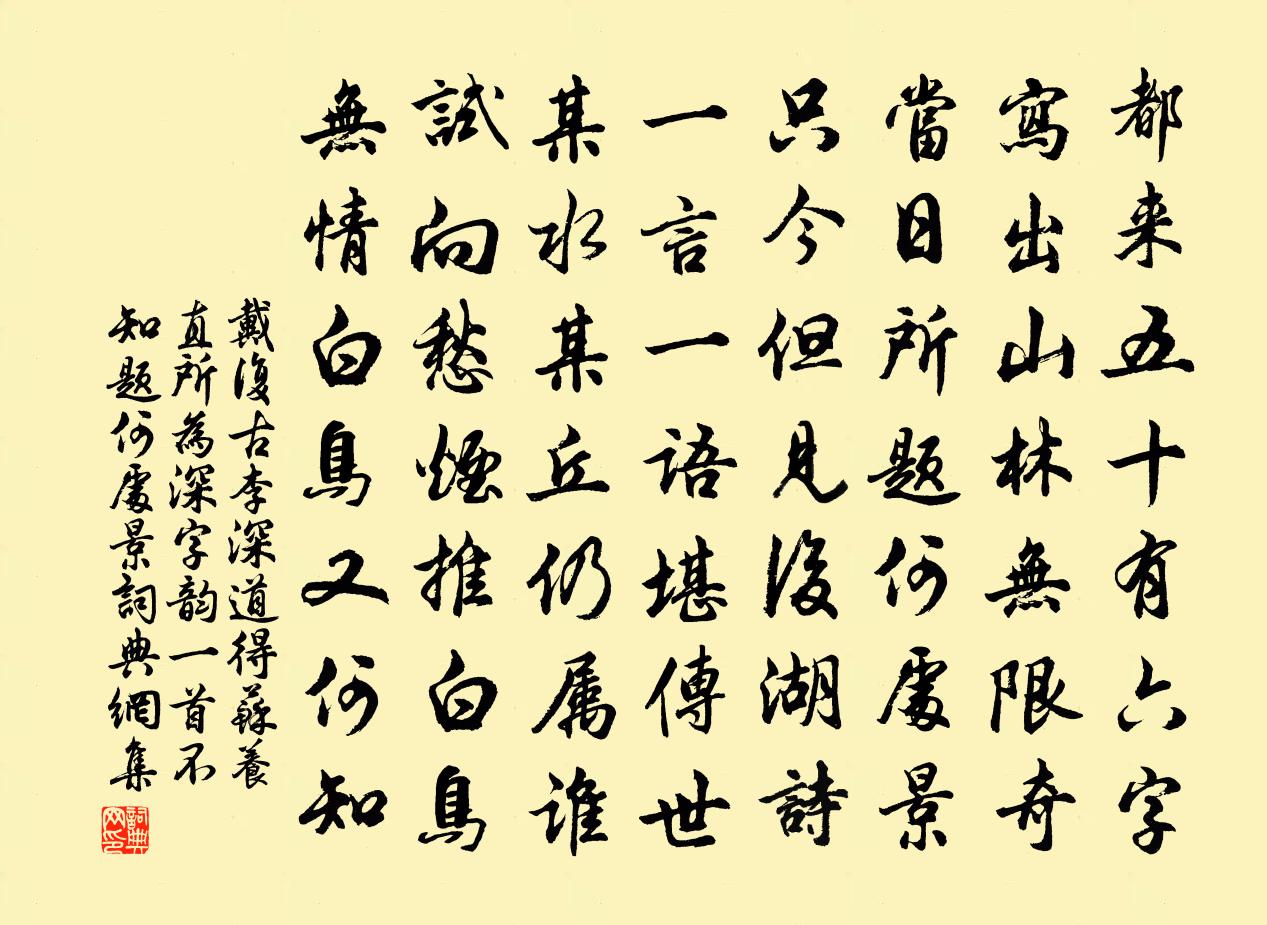 都来五十有六字
寫出山林無限奇
當日所题何處景
只今但見後湖詩
一言一語堪傳世
某水某丘仍属谁
試向愁煙推白鳥
無情白鳥又何知
戴復古李深道得蘇養
直所為深字韵一首不
知题何處景詞典網集
詞典网印